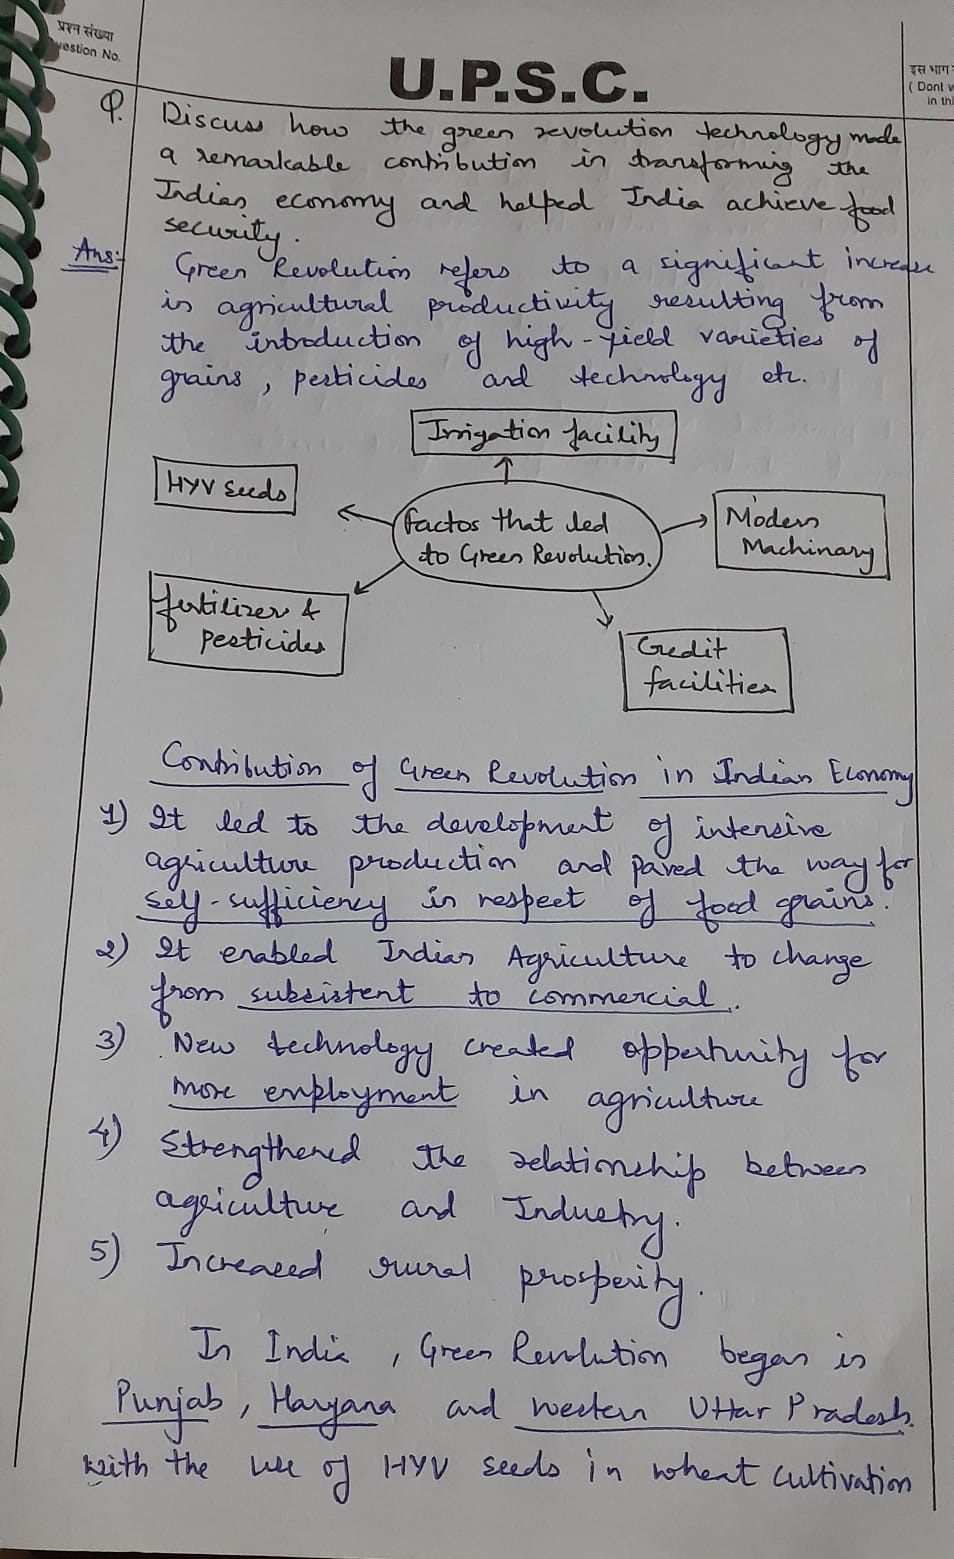 प्रश्न संख्या
uestion No.
U.P.S.C.
इस भाग
( Dont w
in thi
Q. Discuss how the green revolution technology made
a remarkable contribution in transforming the
Indian economy and helped India achieve food
security.
Ans:- Green Revolution refers to a significant increase
in agricultural productivity resulting from
the introduction of high-yield varieties of
grains, pesticides and technology etc.
Irrigation facility
HYV Seeds
Factos that led
to Green Revolution.
Modern
Machinary
Fertilizer &
Pesticides
Credit
facilities
Contribution of Green Revolution in Indian Economy
1) It led to the development of intensive
agriculture production and paved the way for
self-sufficiency in respect of food grains.
2) It enabled Indian Agriculture to change
from subsistent to commercial.
3) New technology created oppertunity for
more employment in agriculture
4) Strengthened the relationship between
agriculture and Industry.
5) Increased rural prosperity.
In India, Green Revolution began in
Punjab, Haryana and western Uttar Pradesh
with the use of HYV seeds in wheat cultivation